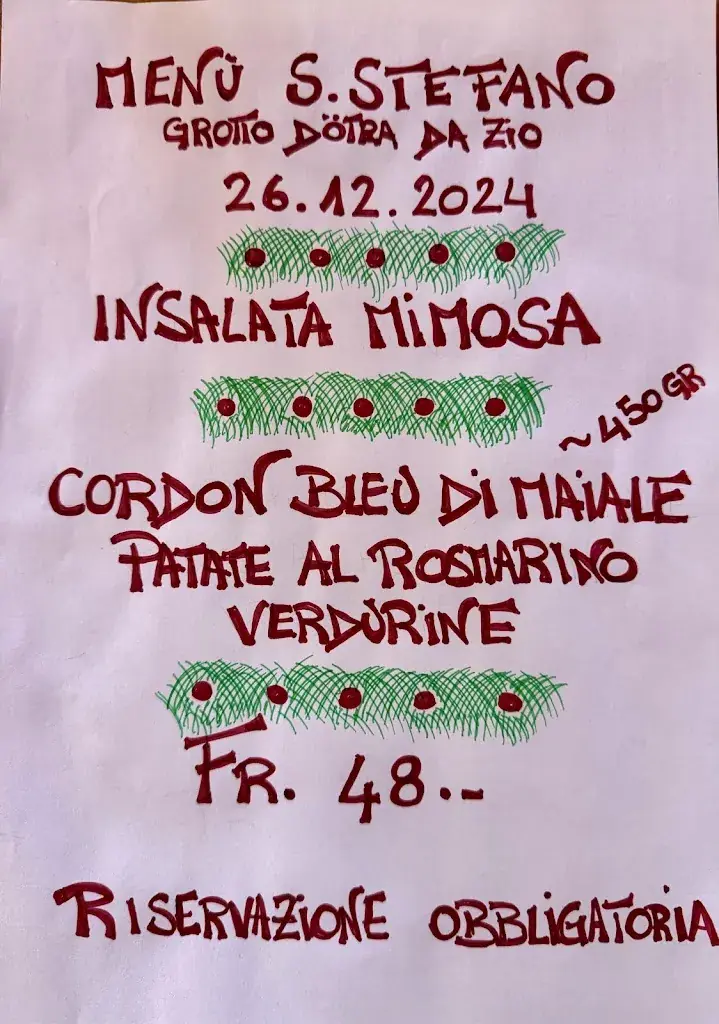 MENÙ S. STEFANO
GROTTO DÖTRA DA ZIO
26.12.2024
INSALATA MIMOSA
~450 GR
CORDON BLEU DI MAIALE
PATATE AL ROSMARINO
VERDURINE
FR. 48.-
RISERVAZIONE OBBLIGATORIA